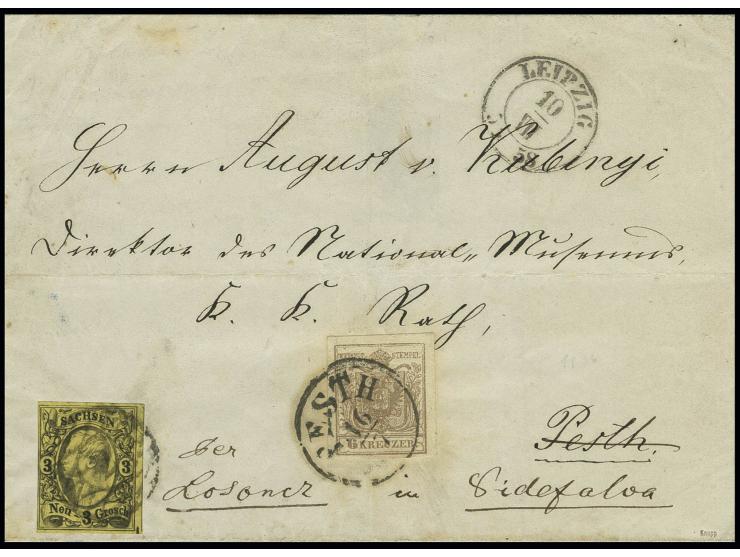 LEIPZIG
10
VII
58
Herrn August v. Kubinyi,
Direktor des National-Museums,
K. K. Rath,
STEMPEL
6 KREUZER
PESTH
16
SACHSEN
3 3
Neu 3 Grosch
Pesth.
per
Losoncz in Videfalva
Knopp